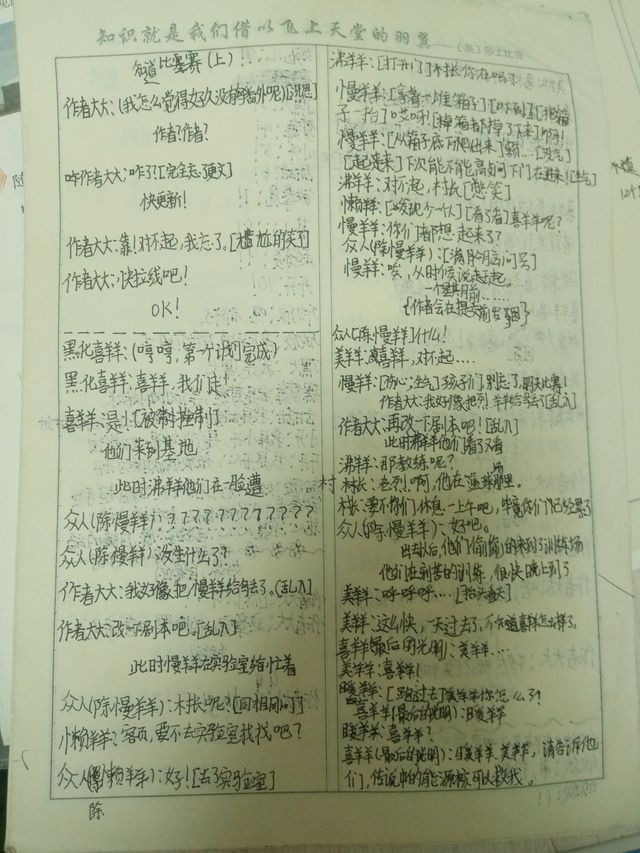 知识就是我们借以飞上天堂的羽翼——（英）莎士比亚
街道比赛（上）
作者大大：（我怎么觉得好久没有番外呢）[沉思]
作者？作者？
咋作者大大：咋了？[完全忘了更文]
快更新！
作者大大：靠！对不起，我忘了。[尴尬的笑了]
作者大大：快拉线吧！
OK！
黑化喜羊羊：（哼哼，第一个计划完成）
黑化喜羊羊：喜羊羊，我们走！
喜羊羊：是！[被带控制]
他们来到基地
此时沸羊羊他们在一脸遭
众人（除慢羊羊）：？？？？？？？？？？？？
众人（除慢羊羊）：没生什么了？
作者大大：我好像把慢羊羊给写丢了。（乱入）
作者大大：改一下剧本吧。[乱入]
此时慢羊羊在实验室给忙着
众人（除慢羊羊）：村长呢？[回相问]
懒羊羊：客页，要不去实验室找找吧？
众人（懒羊羊）：好！[去了实验室]
除
沸羊羊：[打开门]村长你在吗？
慢羊羊：[拿着一堆箱子][吓到了][把箱
子一抬]哎呀！[掉箱都掉了下来]啊！
慢羊羊：[从箱子底下爬出来]额…[生气]
[起起来]下次能不能高点问下门在进来！[生气]
沸羊羊：对不起，村长[憨笑]
懒羊羊：[发现少一个人][看了看]喜羊羊呢？
慢羊羊：你们者都想起来了？
众人（除慢羊羊）：[满脸问号]
慢羊羊：唉，从时候说起。
一个星其月前……
{作者会在提交前发了因}
众人[除慢羊羊]什么！
美羊羊：喜羊羊，对不起…
慢羊羊：[伤心；生气]孩子们，别忘了，明天比赛！
作者大大：我好像把烈羊羊给写丢了[乱入]
作者大大：再改一下剧本吧！[乱入]
此时沸羊羊他们看了又看
沸羊羊：那教练呢？
村长：色烈，啊，他在篮球场那里。
村长：要不你们休息一上午吧，毕竟你们已经累了
众人（除慢羊羊）：好吧。
出去以后，他们偷偷的来到了训练场
他们在刻苦的训练，很快晚上到了
美羊羊：呼呼呼…[抬头看天]
美羊羊：这么快，一天过去了，不知道喜羊羊怎么样了。
喜羊羊（最后的光明）：美羊羊…
美羊羊：喜羊羊！
暖羊羊：[跑过去]美羊羊你怎么了？
喜羊羊（最后的光明）：暖羊羊
暖羊羊：喜羊羊？
喜羊羊（最后的光明）：暖羊羊，美羊羊，请告诉他
们，传说中的能源核可以救我。